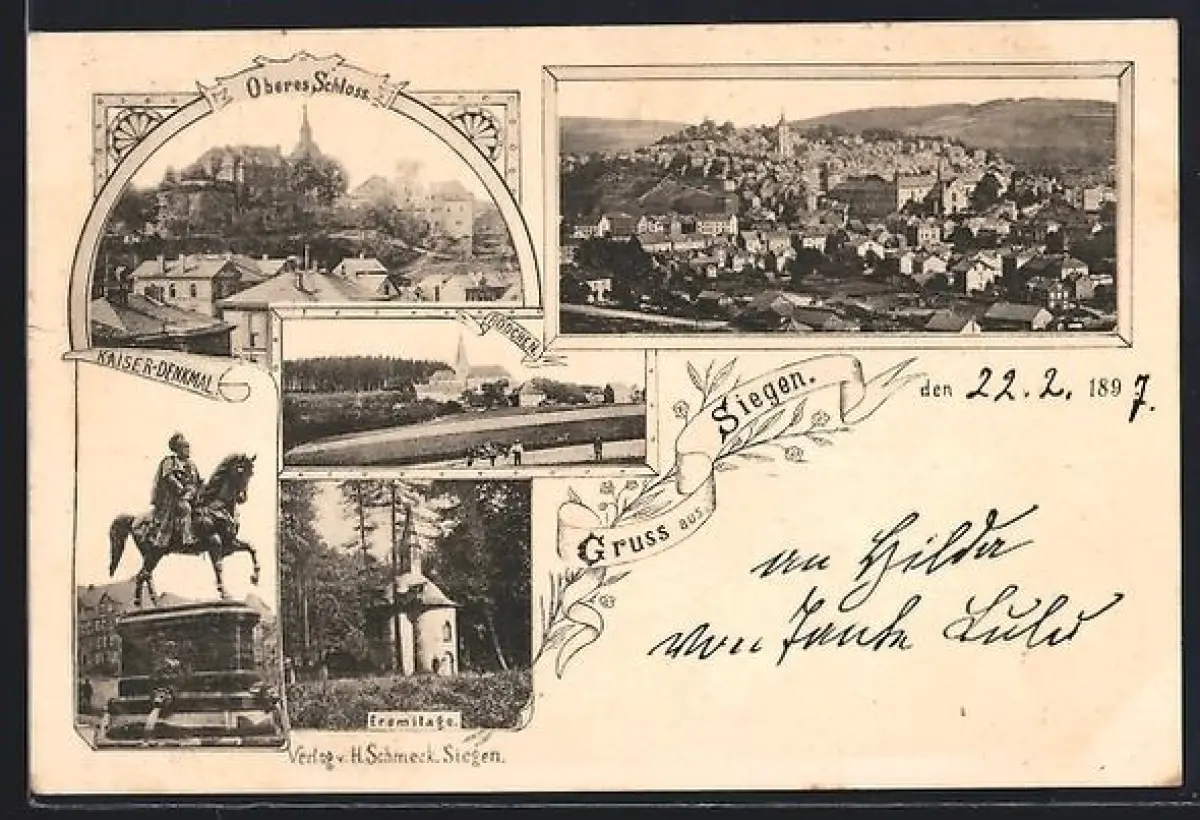 Oberes Schloss.
KAISER-DENKMAL
RÖDCHEN
Gruss aus Siegen.
den 22.2. 1897.
an Hilda
von Tante Lulu
Eremitage.
Verlag v. H. Schmeck. Siegen.